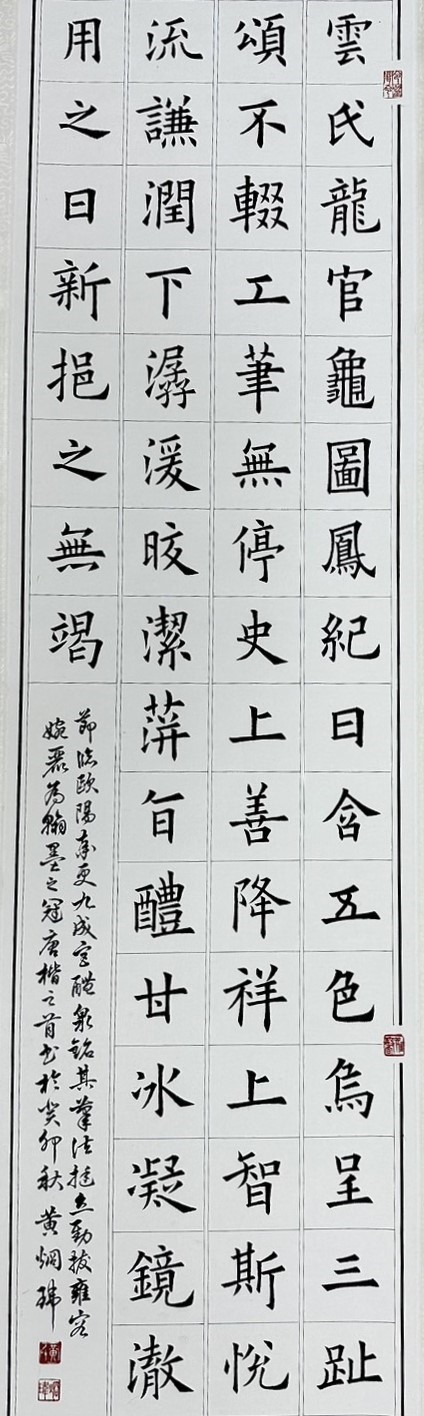 雲氏龍官龜圖鳳紀日含五色烏呈三趾
頌不輟工筆無停史上善降祥上智斯悅
流謙潤下潺湲皎潔蓱旨醴甘冰凝鏡澈
用之日新挹之無竭
節臨歐陽率更九成宮醴泉銘其筆法挺立勁拔雍容
婉麗為翰墨之冠唐楷之首書於癸卯秋 黃炯瑋